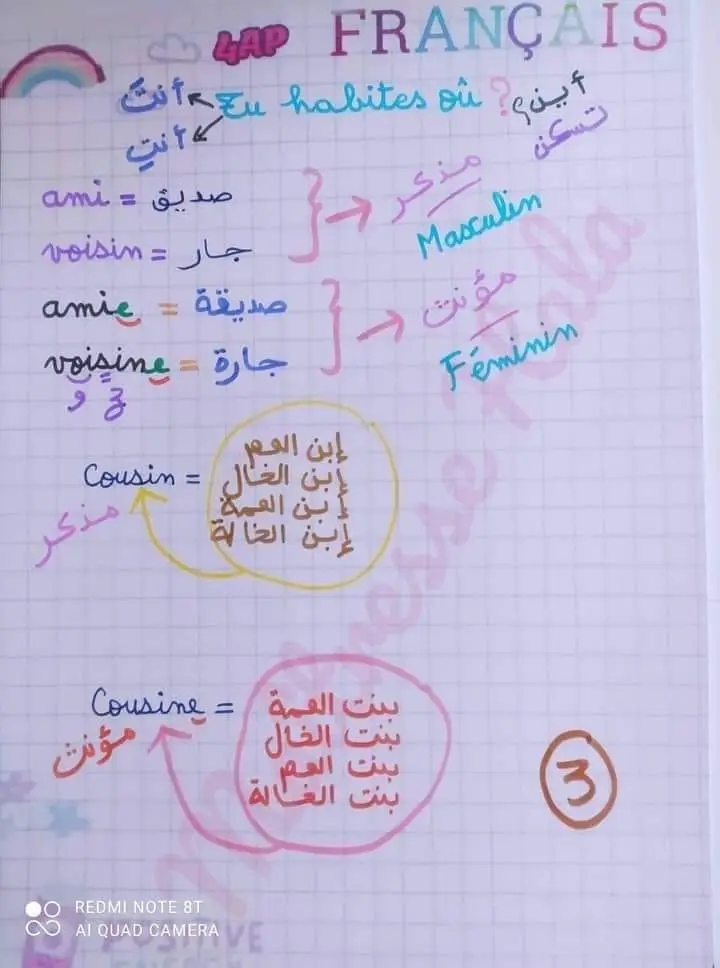 4AP FRANÇAIS
أنتَ Tu habites où ? أين؟
أنتِ تسكن
ami = صديق
مذكر
voisin = جار
Masculin
amie = صديقة
مؤنث
voisine = جارة
Féminin
و ز
إبن العم
Cousin = إبن الخال
مذكر إبن العمة
إبن الخالة
Cousine = بنت العمة
مؤنث بنت الخال
بنت العم
بنت الخالة
3
REDMI NOTE 8T
AI QUAD CAMERA
POSITIVE